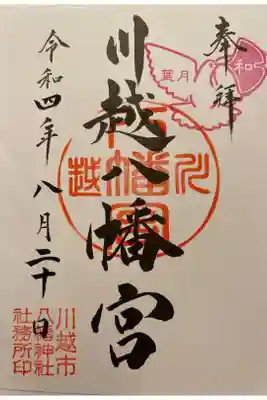 奉拝
和
葉月
川越八幡宮
令和四年八月二十日
川越市
八幡神社
社務所印